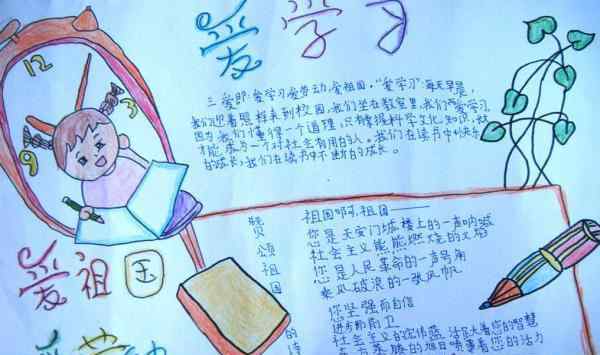 爱学习
三爱即:爱学习爱劳动,爱祖国,"爱学习"每天早晨,
我们迎着照样来到校园,我们坐在教室里,我们爱学习,
因为我们懂得一个道理,只有掌握科学文化知识,就
才能成为一个对社会有用的人。我们在读书中快乐
的成长,我们在读书中不断的成长。
12
3
9
爱祖国
赞颂祖国的诗
祖国啊,祖国——
您是天安门城楼上的一声呐喊
社会主义能熊燃烧的火焰
您是人民革命的一声号角
乘风破浪的一张风帆
您坚强而自信
社会主义的
您的智慧
喷薄着您的活力